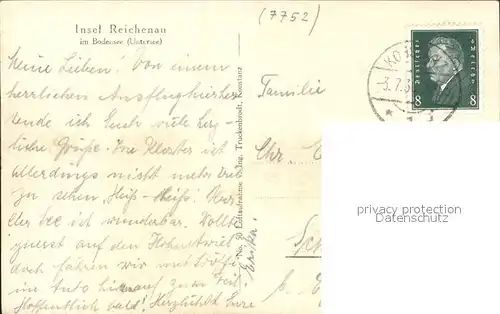 (7752)
Insel Reichenau
im Bodensee (Untersee)
Meine Lieben! Von einem
herrlichen Ausflug hierher
sende ich Euch viele herz-
liche Grüße. Im Kloster ist
allerdings nicht mehr viel
zu sehen. Heiß - Heiß. Nur
der See ist wunderbar. Wollte
zuerst auf den Hohentwiel
doch fahren wir mit
im Auto hinauf zur Zeit.
Hoffentlich bald! Herzlichst Eure
Erika!
No. 80 Luftaufnahme v. Ing. Truckenbrodt, Konstanz
Familie
Chr.
Deutsches Reich
8 8
3.7.3
privacy protection
Datenschutz